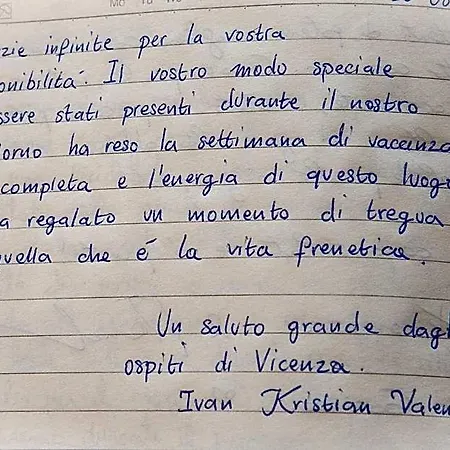 zie infinite per la vostra
onibilità. Il vostro modo speciale
ssere stati presenti durante il nostro
iorno ha reso la settimana di vaccanza
completa e l'energia di questo luogo
a regalato un momento di tregua
uella che é la vita frenetica.
Un saluto grande dagl
ospiti di Vicenza.
Ivan Kristian Valen